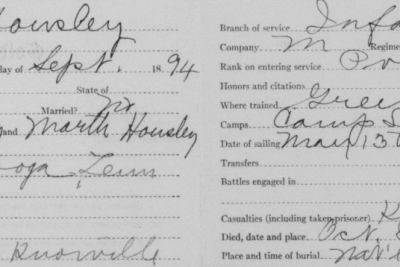 Housley
day of Sept. 1894
State of
Married? No
and Marth Housley
oga Tenn
Knoxville
Branch of service Infa
Company M Regime
Rank on entering service Pv
Honors and citations
Where trained Gree
Camps Camp S
Date of sailing May 13
Transfers
Battles engaged in
Casualties (including taken prisoner) K
Died, date and place Oct. 8
Place and time of burial Nat'l